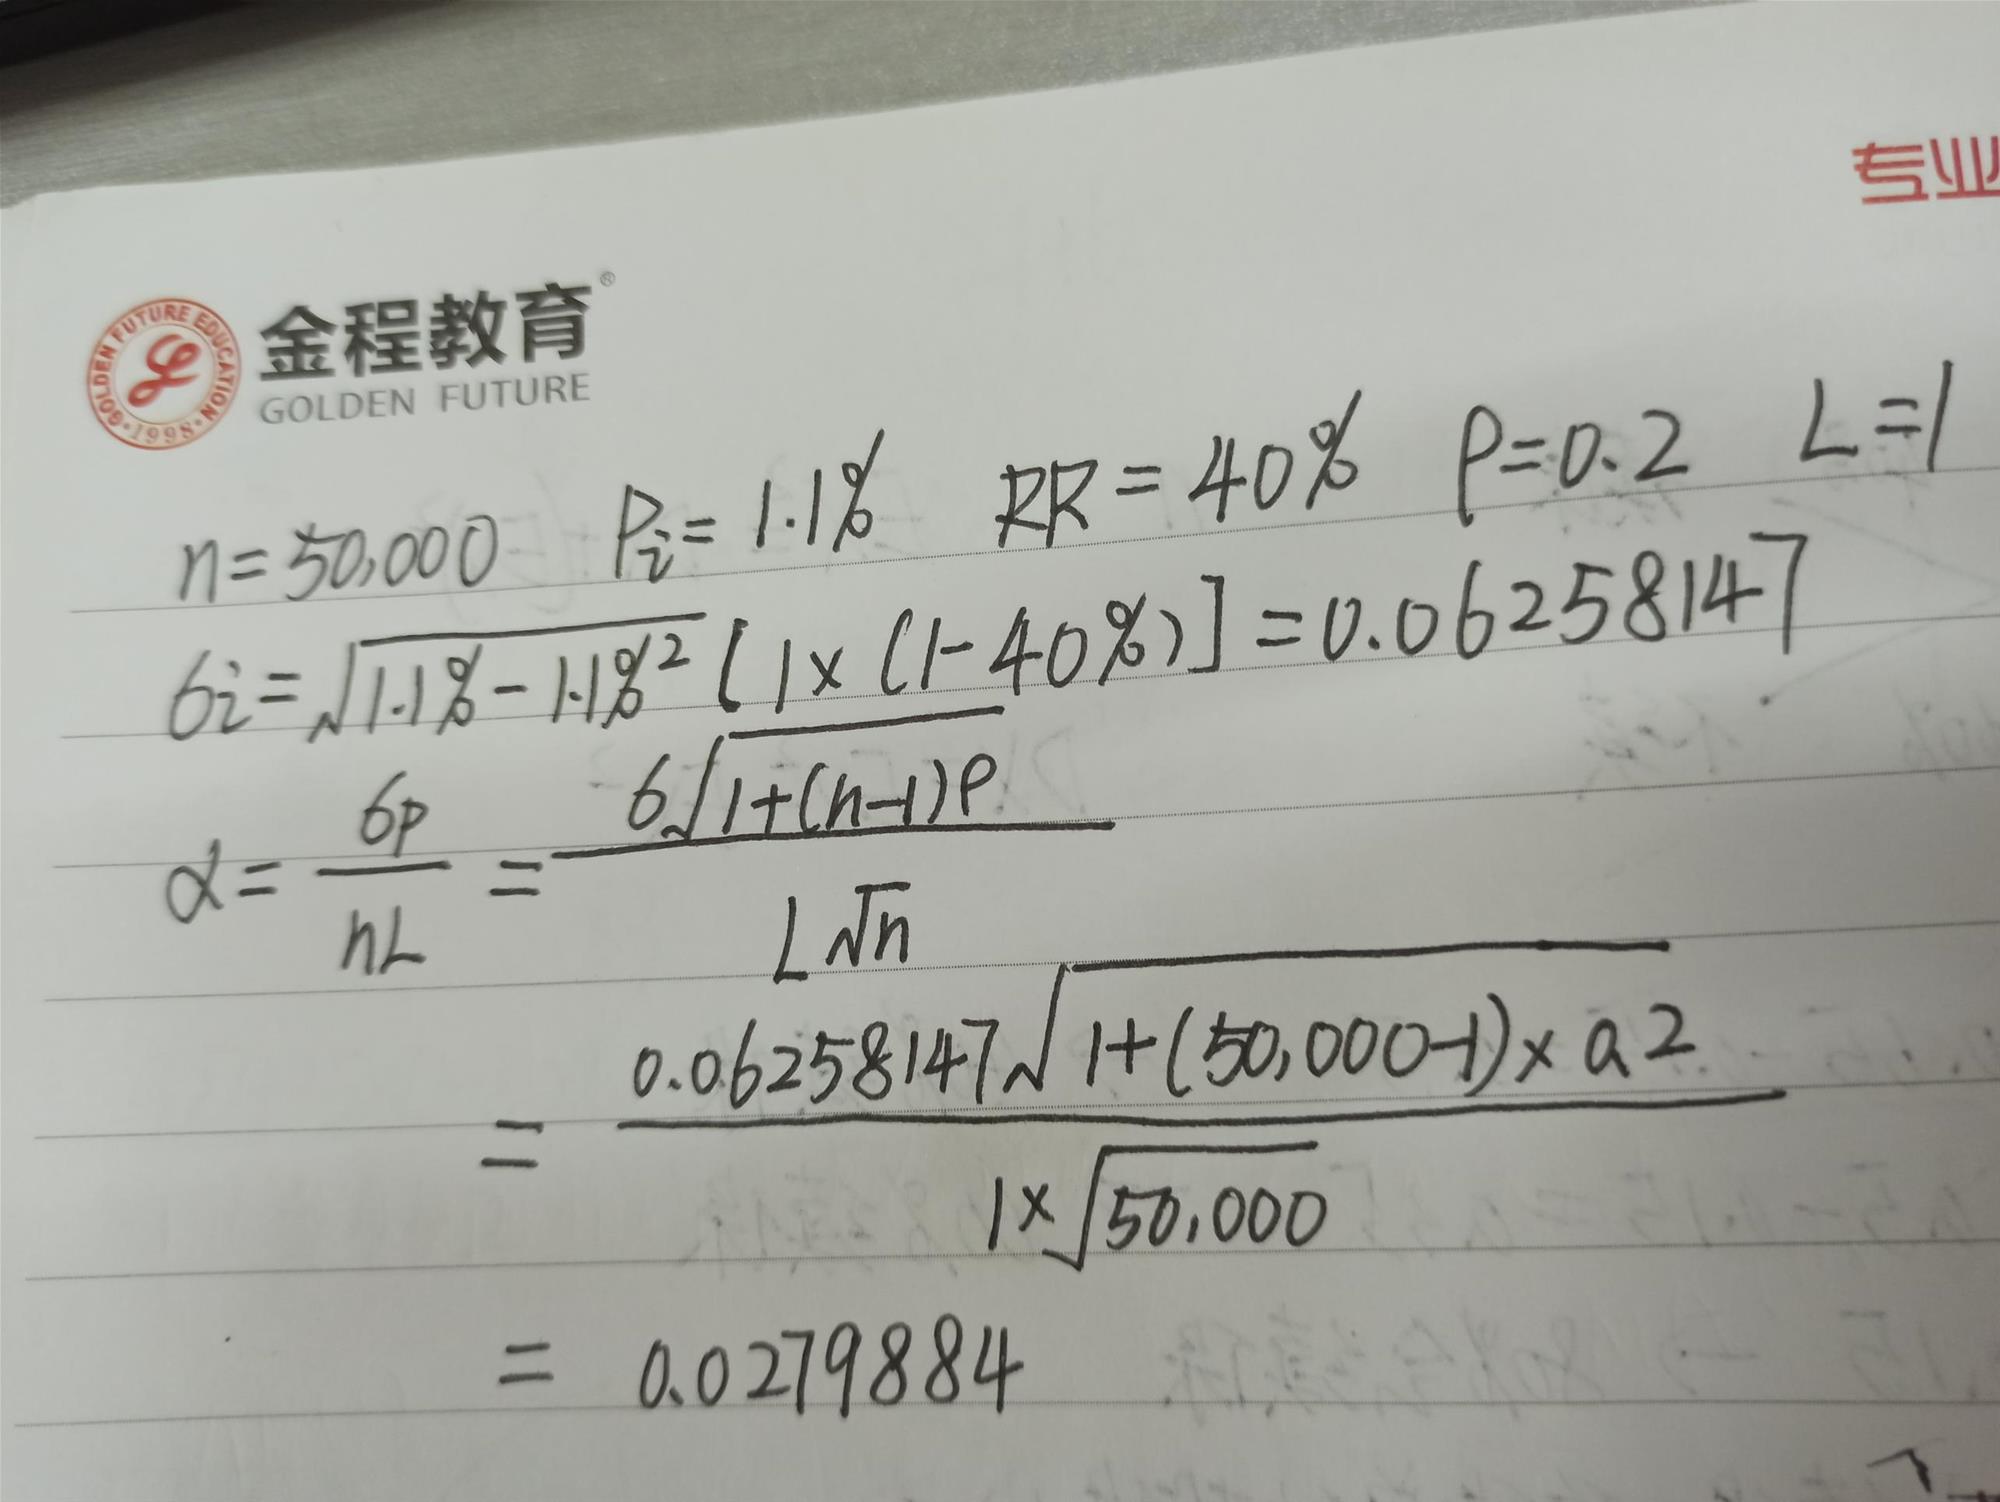 专业
GOLDEN FUTURE EDUCATION
·1998·
金程教育®
GOLDEN FUTURE
n=50,000 Pi=1.1% RR=40% ρ=0.2 L=1
σi=√1.1%-1.1%² [1×(1-40%)]=0.06258147
α= σp/nL = σ√1+(n-1)ρ / L√n
= 0.06258147√1+(50,000-1)×0.2 / 1×√50,000
= 0.0279884